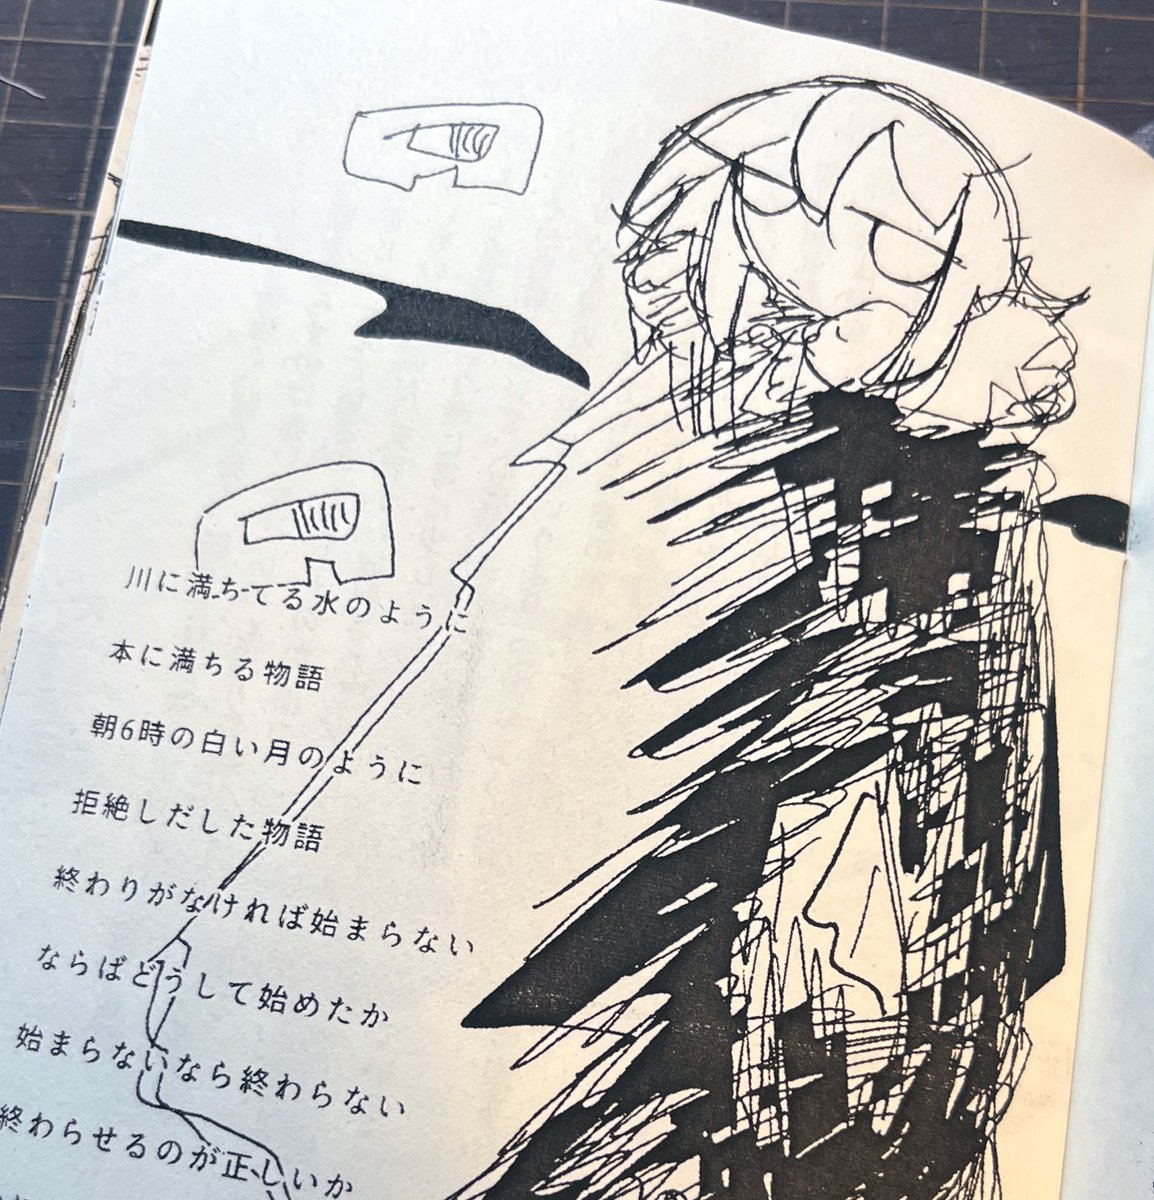 川に満ちてる水のように
本に満ちる物語
朝6時の白い月のように
拒絶しだした物語
終わりがなければ始まらない
ならばどうして始めたか
始まらないなら終わらない
終わらせるのが正しいか